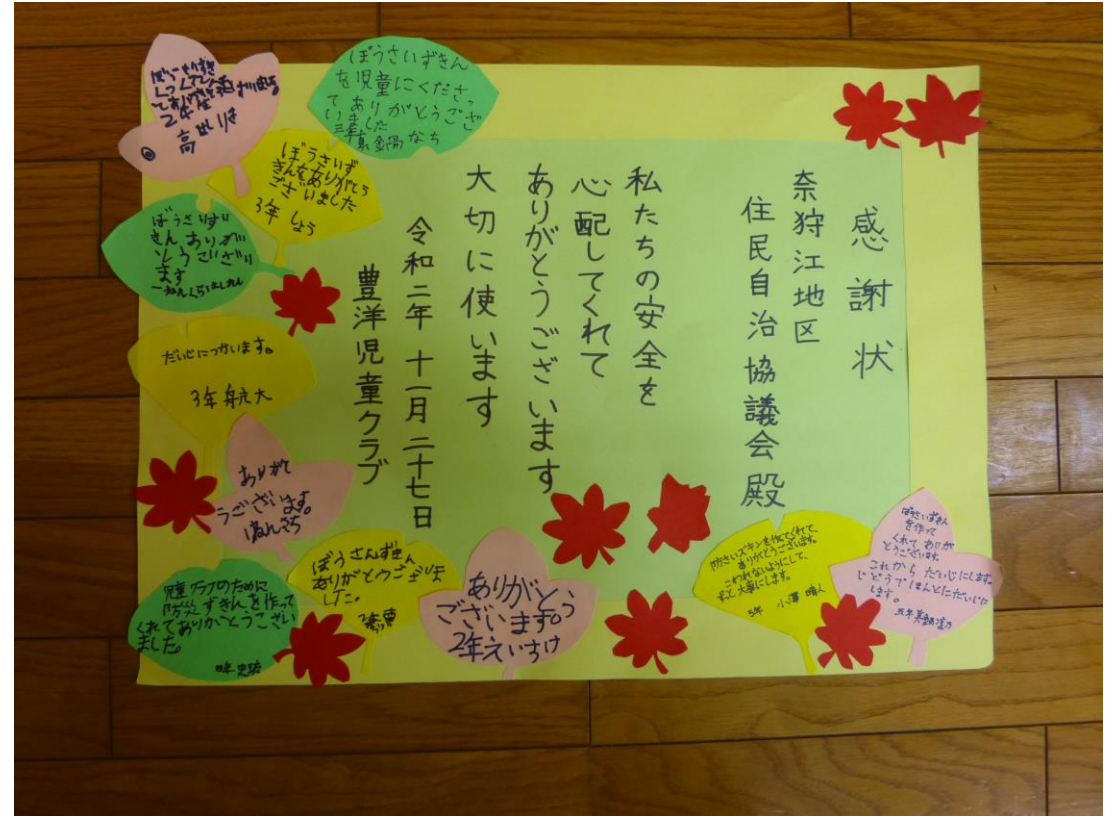 感謝状
奈狩江地区
住民自治協議会殿
私たちの安全を
心配してくれて
ありがとうございます
大切に使います
令和二年十一月二十七日
豊洋児童クラブ
ぼうさいずきん
を児童にくださっ
てありがとうござ
いました
三年真鍋なち
ぼうさいず
きんをありがとう
ございました
3年しょう
ぼうさいずい
きんありが
とうござい
ます
だいじにつかいます。
3年航大
ありがと
うございます。
児童クラブのために
防災ずきんを作って
くれてありがとうござい
ました。
ぼうさんずきん
ありがとうございま
した。
ありがとう
ございます。
2年えいすけ
防さいズキンを作ってくれて、
ありがとうございます。
こわれないようにして、
ずっと大事にします。
5年 小澤 晴人
ぼうさいずきん
を作って
くれてありが
とうございます。
これからだいじにします。
じどうでほんとにだいじに
します。